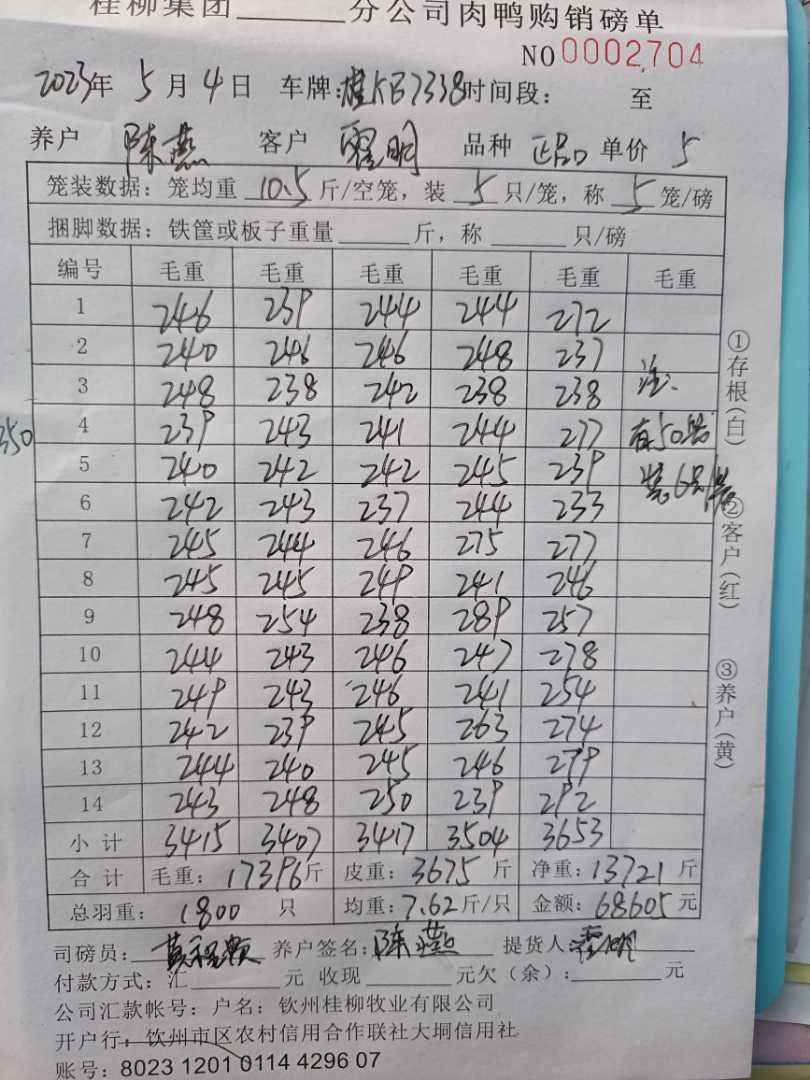 桂柳集团______分公司肉鸭购销磅单
NO 0002704
2023年 5月 4日 车牌:桂KB7338 时间段: 至
养户 陈燕 客户 明 品种 正品 单价 5
笼装数据: 笼均重 10.5 斤/空笼, 装 5 只/笼, 称 5 笼/磅
捆脚数据: 铁筐或板子重量______斤, 称______只/磅
编号 毛重 毛重 毛重 毛重 毛重 毛重
1 246 239 244 244 272
2 240 246 246 248 237
3 248 238 242 238 238 注:
4 239 243 241 244 277 有50笼
5 240 242 242 245 239 装6只/笼
6 242 243 237 244 233
7 245 244 246 275 277
8 245 245 249 241 246
9 248 254 238 289 257
10 244 243 246 247 278
11 249 243 246 241 254
12 242 239 245 263 274
13 244 240 245 246 279
14 243 248 250 239 292
小计 3415 3407 3417 3504 3653
合计 毛重: 17396斤 皮重: 3675 斤 净重: 13721 斤
总羽重: 1800 只 均重: 7.62斤/只 金额: 68605元
司磅员: 黄 养户签名: 陈燕 提货人: 明
付款方式: 汇______元 收现______元欠(余):______元
公司汇款帐号: 户名: 钦州桂柳牧业有限公司
开户行: 钦州市区农村信用合作联社大垌信用社
账号: 8023 1201 0114 4296 07
①存根(白)
②客户(红)
③养户(黄)
350